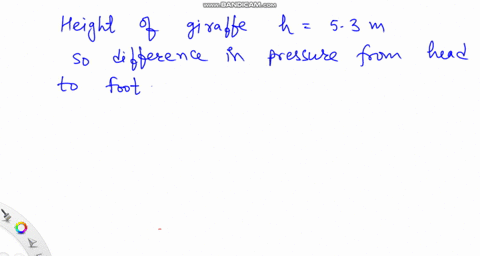 WWW.BANDICAM.COM
Height of giraffe h = 5.3 m
so difference in pressure from head
to foot